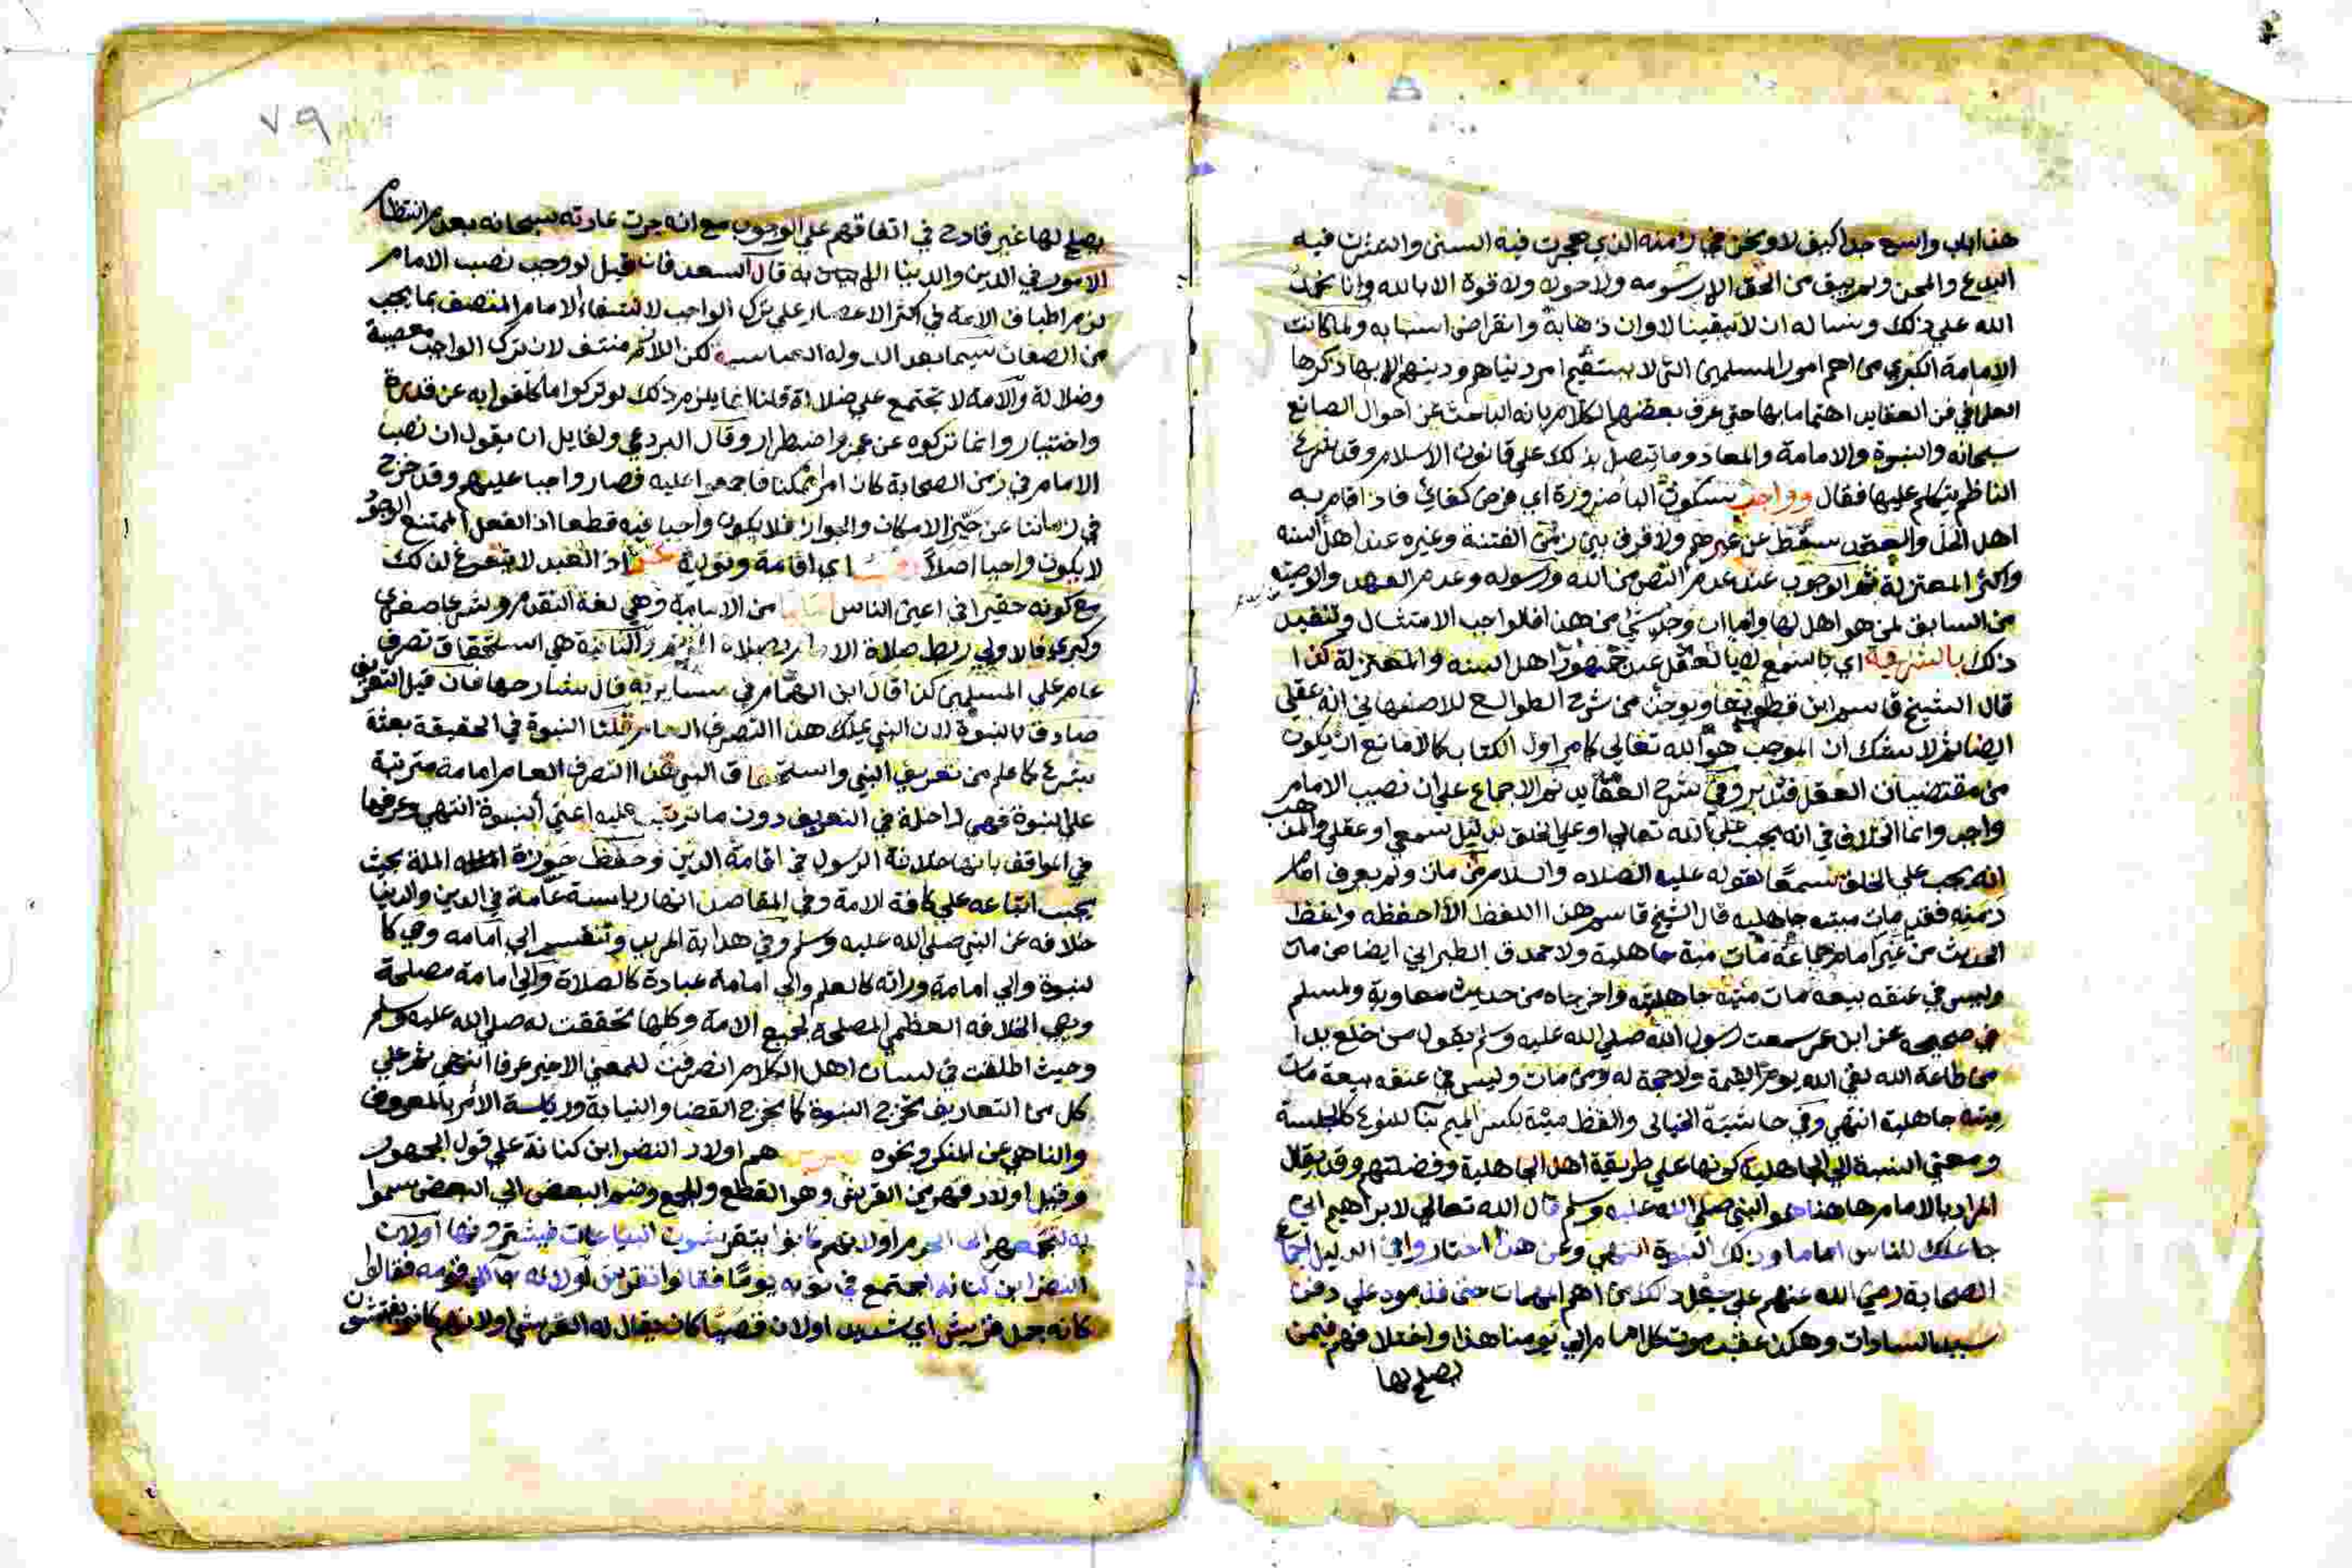 هذا باب واسع جدا كيف لا ونحن في زمنه الذي هجرت فيه السنن وانتشرت فيه
البدع والمحن ولم يبق من الحق الا رسومه ولا حول ولا قوة الا بالله وانا نحمد
الله على ذلك ونساله ان لا يبقينا لاوان ذهابه وانقراض اسبابه ولما كانت
الامامة الكبرى من اهم امور المسلمين التي لا يستقيم امر دنياهم ودينهم الا بها ذكرها
العلما في فن العقايد اهتماما بها حتى عرف بعضهم الكلام بانه الباحث عن احوال الصانع
سبحانه والنبوة والامامة والمعاد وما يتصل بذلك على قانون الاسلام وقد شرع
الناظم يتكلم عليها فقال وواجب بسكون البا ضرورة اي فرض كفاية فاذا قام به
اهل الحل والعقد سقط عن غيرهم ولا فرق بين زمن الفتنة وغيره عند اهل السنه
واكثر المعتزلة ثم الوجوب عند عدم النص من الله ورسوله وعدم العهد والوصية
من السابق لمن هو اهل لها واما ان وجد شي من هذا فالواجب الامتثال وتنفيذ
ذلك بالشرع اي بالسمع لا بالعقل عند جمهور اهل السنه والمعتزلة كذا
قال الشيخ قاسم ابن قطلوبغا ويوجد من شرح الطوالع للاصفهاني انه عقلي
ايضا لا شك ان الموجب هو الله تعالى كما مر اول الكتاب كالامانع ان يكون
من مقتضيات العقل فتدبر وفي شرح العقايد ثم الاجماع على ان نصب الامام
واجب وانما الخلاف في انه يجب على الله تعالى او على الخلق بدليل سمعي او عقلي والمذهب
انه يجب على الخلق سمعا لقوله عليه الصلاه والسلام من مات ولم يعرف امام
زمنه فقد مات ميته جاهليه قال الشيخ قاسم هذا اللفظ لا احفظه ولفظ
الحديث من غير امام جماعة مات ميتة جاهلية ولاحمد والطبراني ايضا من مات
وليس في عنقه بيعه مات ميتة جاهلية واخرجاه من حديث معاوية ولمسلم
في صحيحه عن ابن عمر سمعت رسول الله صلى الله عليه وسلم يقول من خلع يدا
من طاعة الله لقي الله يوم القيمة ولا حجة له ومن مات وليس في عنقه بيعة مات
ميتة جاهلية انتهى وفي حاشية الخيالى والفظ ميتة بكسر الميم بنا للنوع كالجلسة
ومعنى النسبة الى الجاهلية كونها على طريقة اهل الجاهلية وفضلتهم وقد يقال
المراد بالامام هاهنا هو النبي صلى الله عليه وسلم قال الله تعالى لابراهيم اني
جاعلك للناس اماما وذلك النبوة انتهى وعن هذا اختار وافي الدليل اجماع
الصحابة رضي الله عنهم على جعل ذلك من اهم المهمات حتى قدموه على دفن
سيد السادات وهكذا عقب موت كل امام الى يومنا هذا واختلافهم فيمن
يصلح لها
يصلح لها غير قادح في اتفاقهم على الوجوب مع انه جرت عادته سبحانه بعدم انتظام
الامور في الدين والدنيا الا به قال السعد فان قيل لو وجب نصب الامام
لزم اطباق الامة في اكثر الاعصار على ترك الواجب لانتفاء الامام المتصف بما يجب
من الصفات سيما بعد الدوله العباسيه لكن اللازم منتف لان ترك الواجب معصية
وضلالة والامة لا تجتمع على ضلالة قلنا انما يلزم ذلك لو تركوا ما كلفوا به عن قدرة
واختيار وانما تركوه عن عجز واضطرار وقال البردعي ولقايل ان يقول ان نصب
الامام في زمن الصحابة كان امرا ممكنا فاجمعوا عليه فصار واجبا عليهم وقد خرج
في زماننا عن حيز الامكان والجواز فلا يكون واجبا فيه قطعا اذ الفعل الممتنع الوجود
لا يكون واجبا اصلا اي اقامة وتولية اذ العبد لا يتفرغ لذلك
مع كونه حقيرا في اعين الناس من الامامة وهي لغة التقدم وشرعا صغرى
وكبرى فالاولى ربط صلاة بصلاة والثانية هي استحقاق تصرف
عام على المسلمين كذا قال ابن الهمام في مسايرته قال شارحها فان قيل التعريف
صادق بالنبوة لان النبي يملك هذا التصرف العام قلنا النبوة في الحقيقة بعثة
بشرع كما علم من تعريف النبي واستحقاق النبي هذا التصرف العام امامة مترتبة
على النبوة فهي داخلة في التعريف دون ما ترتب عليه اعني النبوة انتهى وعرفها
في المواقف بانها خلافة الرسول في اقامة الدين وحفظ حوزة الملة بحيث
يجب اتباعه على كافة الامة وفي المقاصد انها رياسة عامة في الدين والدنيا
خلافه عن النبي صلى الله عليه وسلم وفي هداية المريد وتنقسم الى امامه وحي كا
لنبوة والى امامة وراثه كالعلم والى امامة عبادة كالصلاة والى امامة مصلحة
وهي الخلافه العظمى المصلحة لجميع الامة وكلها تحققت له صلى الله عليه وسلم
وحيث اطلقت في لسان اهل الكلام انصرفت للمعنى الاخير عرفا انتهى ثم على
كل من التعاريف تخرج النبوة كما يخرج القضا والنيابة ورياسة الامر بالمعروف
والناهي عن المنكر ونحوه هم اولاد النضر ابن كنانة على قول الجمهور
وقيل اولاد فهر من القرش وهو القطع والجمع وضم البعض الى البعض سموا
به لتجمعهم الى الحرم او لانهم كانوا يتقرشون البياعات فيشترونها او لان
النضر ابن كنانه اجتمع في ثوبه يوما فقالوا تقرش او لانه جا الى قومه فقالوا
كانه جمل قريش اي شديد اولان قصيا كان يقال له القرشي اولانهم كانوا يفتشون
٧٩